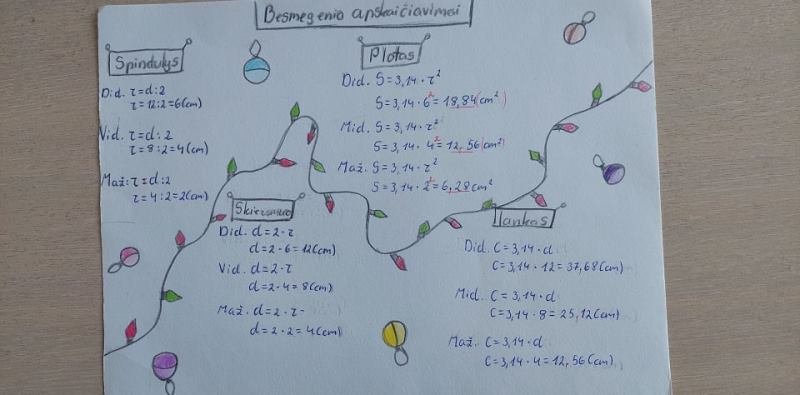 Besmegenio apskaičiavimai
Spindulys
Did. r=d:2
r=12:2=6(cm)
Vid. r=d:2
r=8:2=4(cm)
Maž: r=d:2
r=4:2=2(cm)
Plotas
Did. S=3,14·r²
S=3,14·6²=18,84(cm²)
Mid. S=3,14·r²
S=3,14·4²=12,56(cm²)
Maž. S=3,14·r²
S=3,14·2²=6,28cm²
Did. d=2·r
d=2·6=12(cm)
Vid. d=2·r
d=2·4=8(cm)
Maž. d=2·r
d=2·2=4(cm)
lankas
Did. C=3,14·d
C=3,14·12=37,68(cm)
Mid. C=3,14·d
C=3,14·8=25,12(cm)
Maž. C=3,14·d
C=3,14·4=12,56(cm)